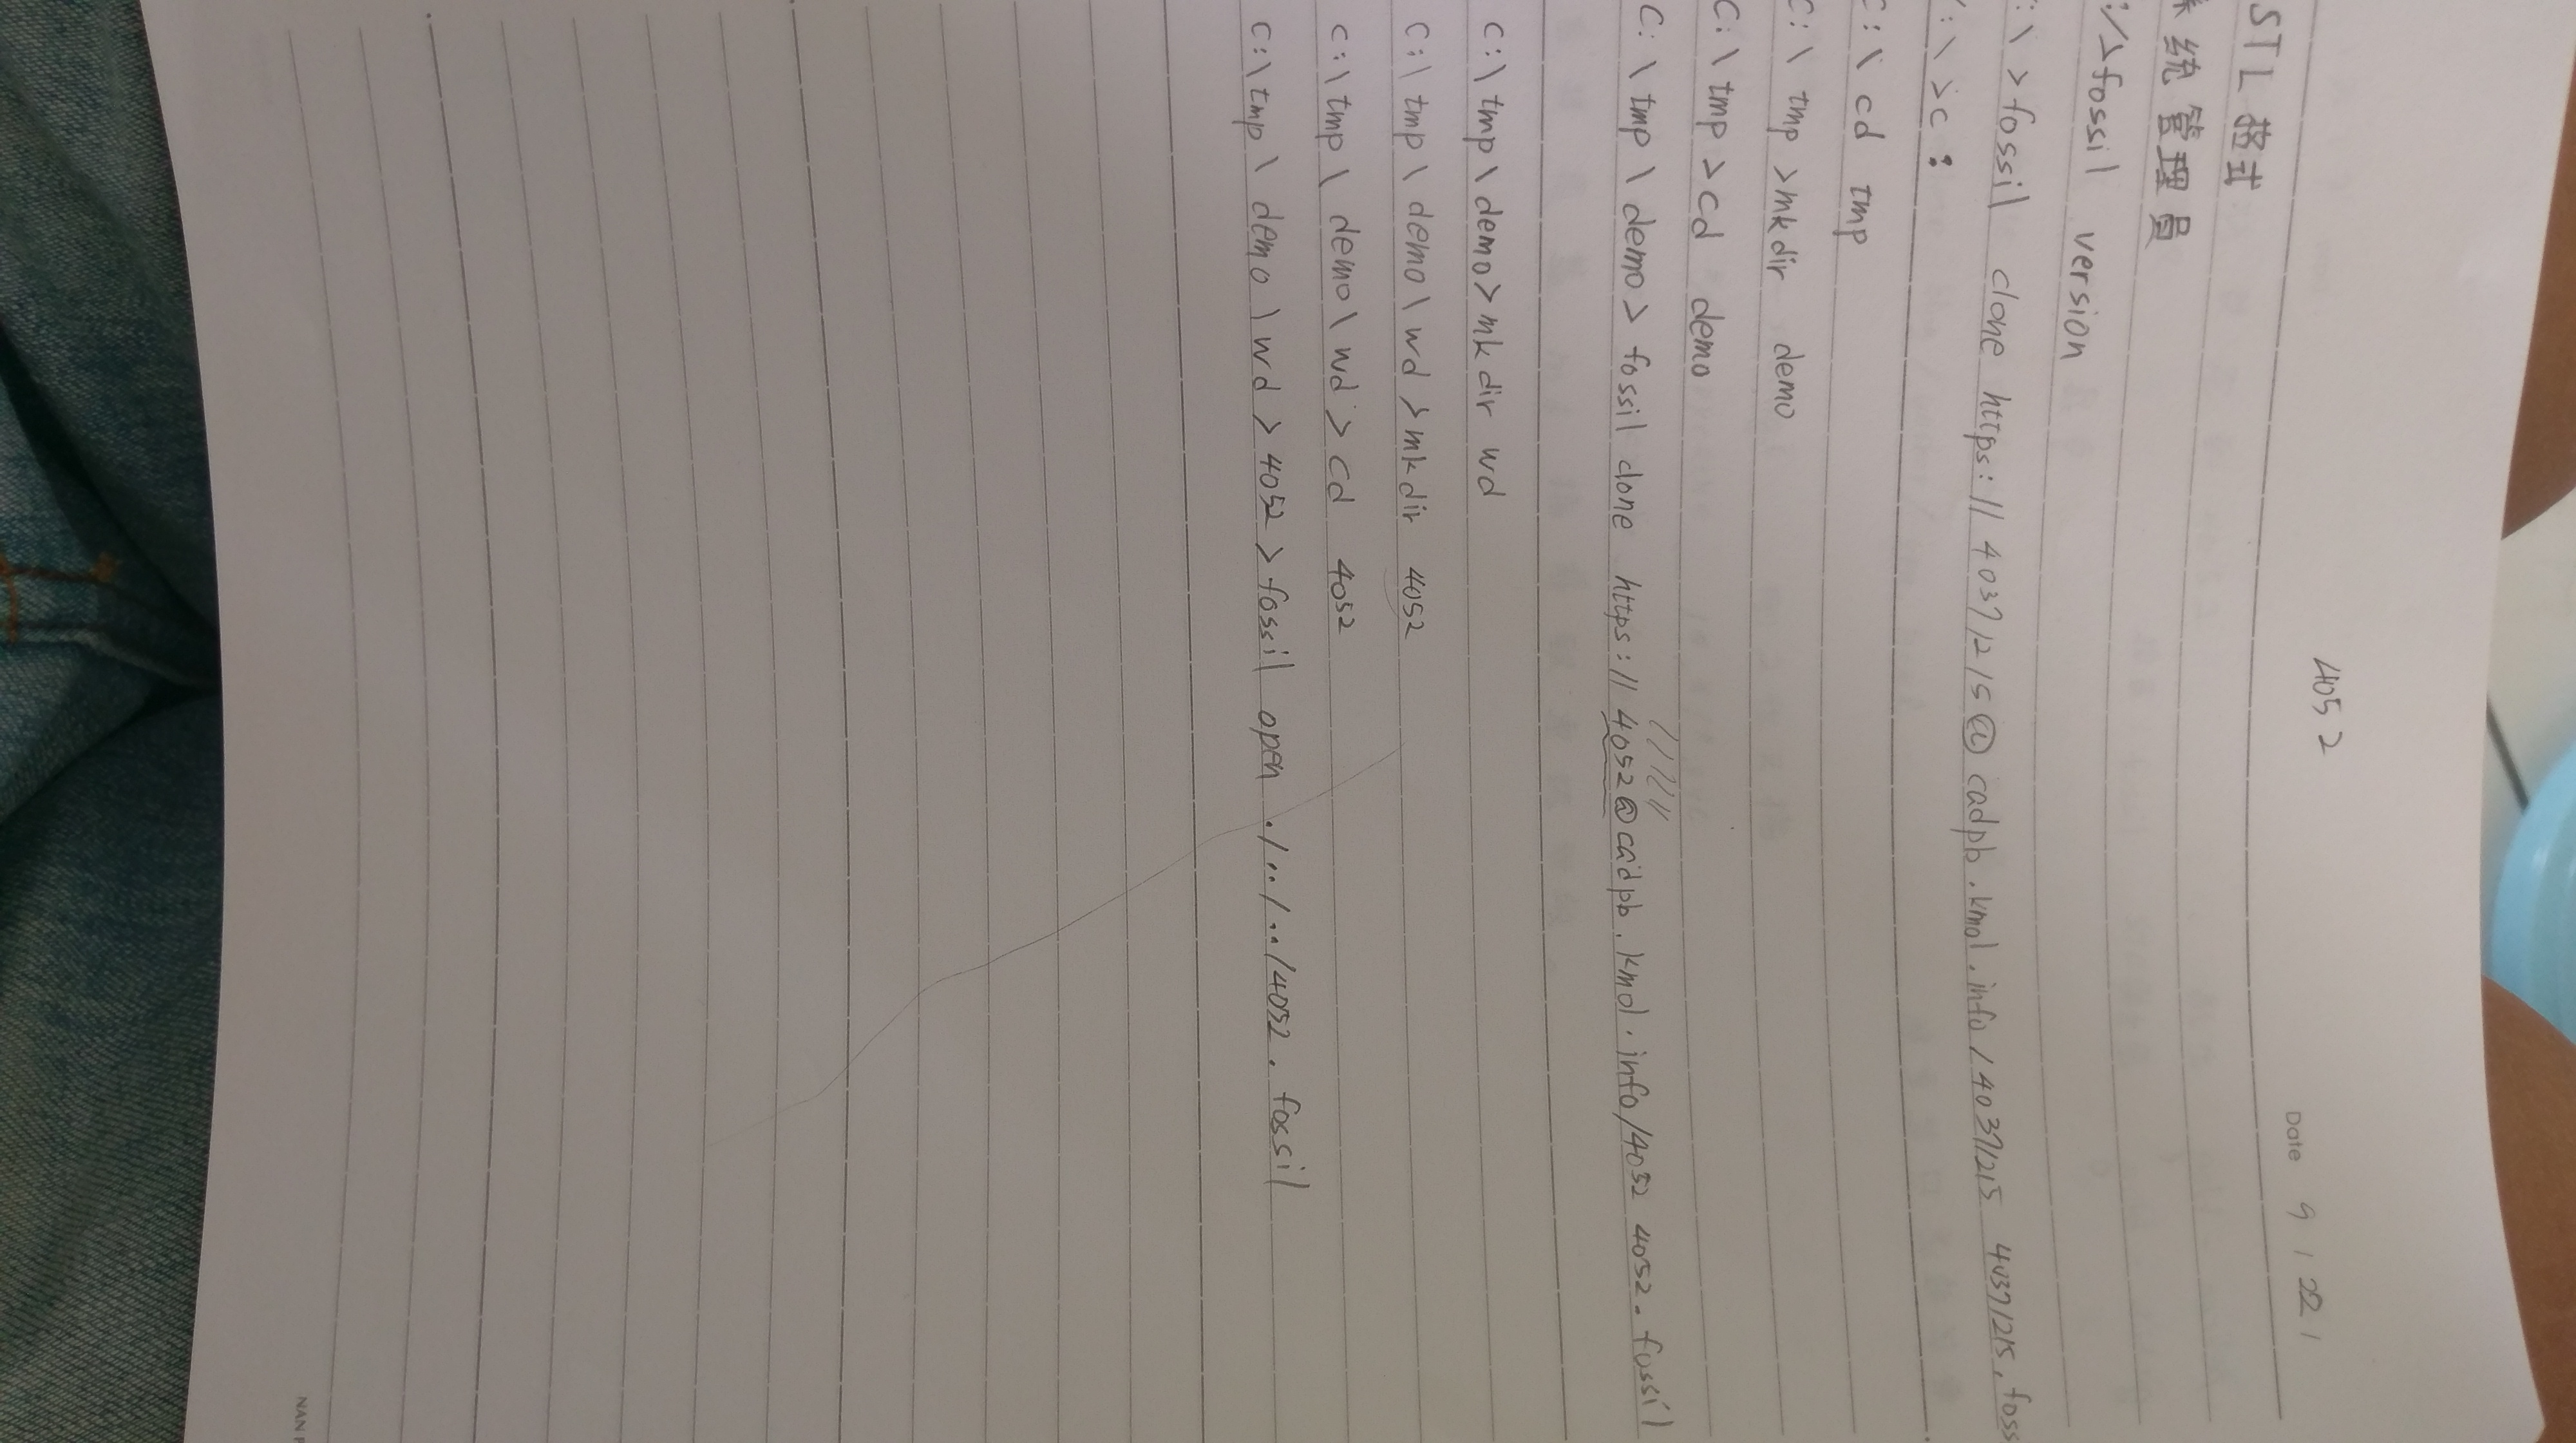 4052
Date 9 / 22 /
STL 格式
系統管理員
:/>fossil version
:\>fossil clone https://40371215@cadpb.kmol.info/40371215 40371215.foss
:\>c:
C:\cd tmp
C:\tmp>mkdir demo
C:\tmp>cd demo
C:\tmp\demo>fossil clone https://4052@cadpb.kmol.info/4052 4052.fossil
C:\tmp\demo>mkdir wd
C:\tmp\demo\wd>mkdir 4052
C:\tmp\demo\wd>cd 4052
C:\tmp\demo\wd>4052>fossil open ./../../4052.fossil
NAN